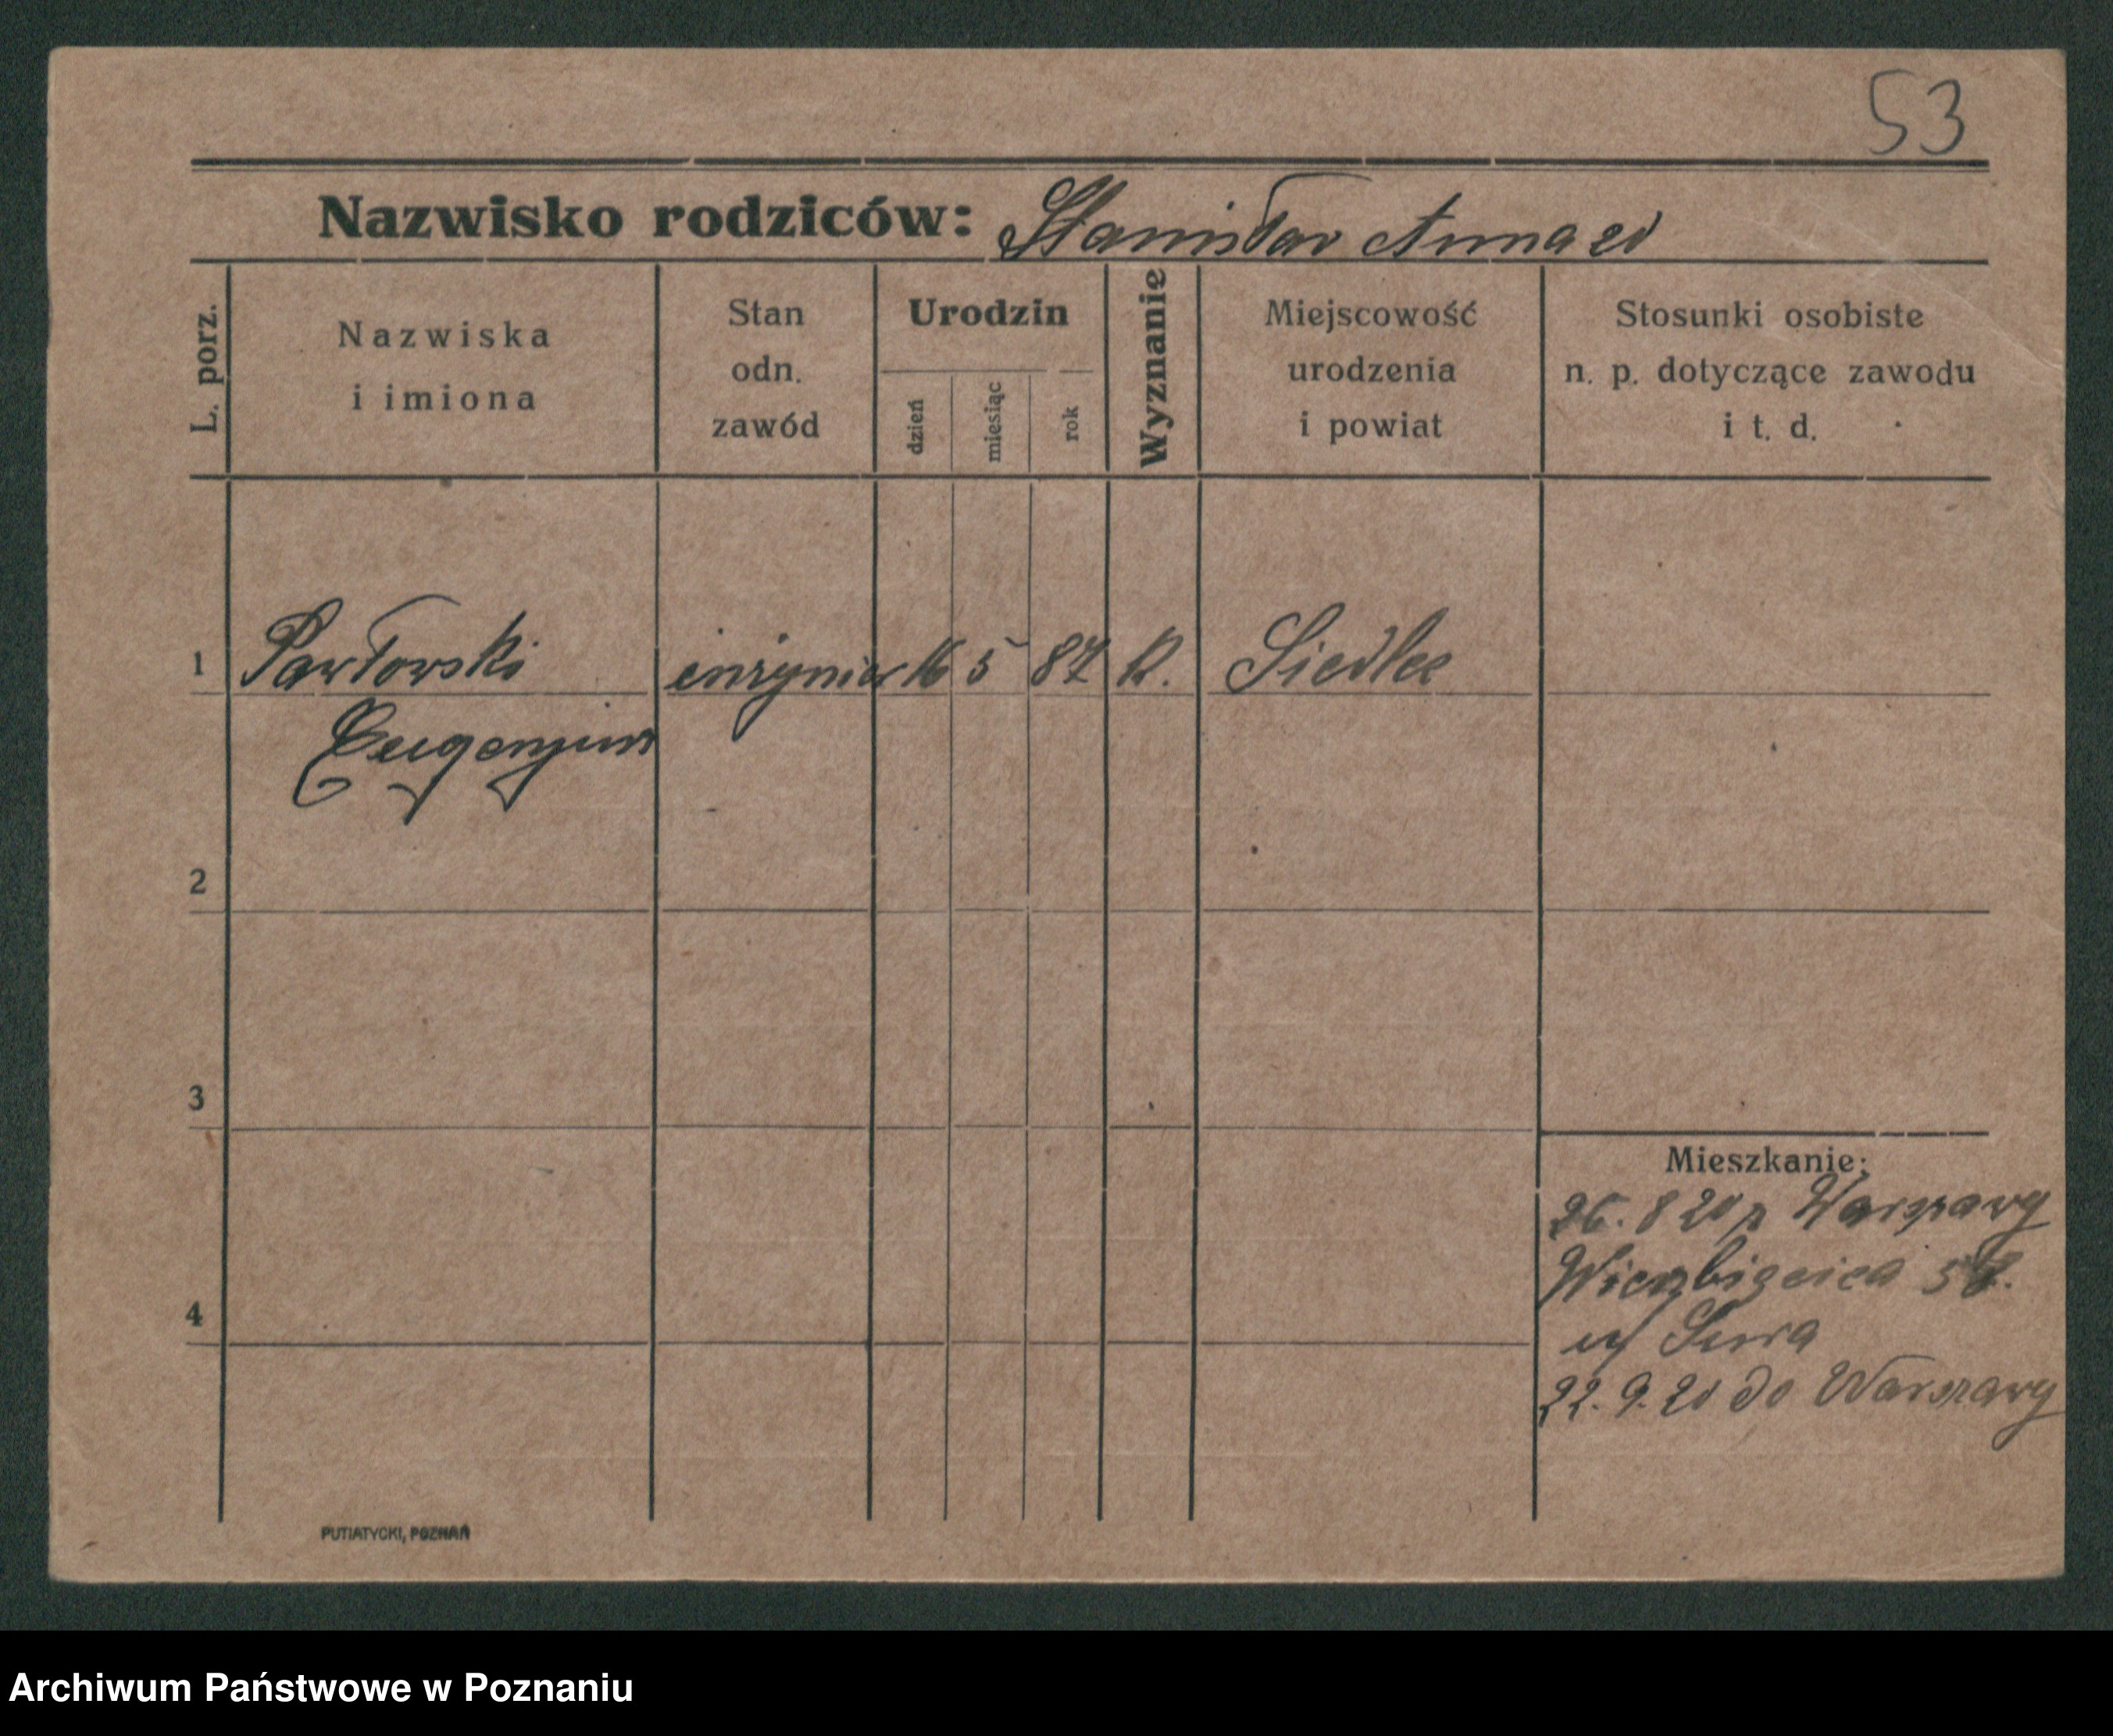 53
Nazwisko rodziców: Stanisław Anna
L. porz.
Nazwiska
i imiona
Stan
odn.
zawód
Urodzin
dzień
miesiąc
rok
Wyznanie
Miejscowość
urodzenia
i powiat
Stosunki osobiste
n. p. dotyczące zawodu
i t. d.
1 Pawłowski inżynier 16 5 87 R. Siedlce
Eugenjusz
2
3
4
Mieszkanie:
26. 8 20 z Warszawy
Wierzbięcica
22. 9. 20 do Warszawy
PUTIATYCKI, POZNAŃ
Archiwum Państwowe w Poznaniu